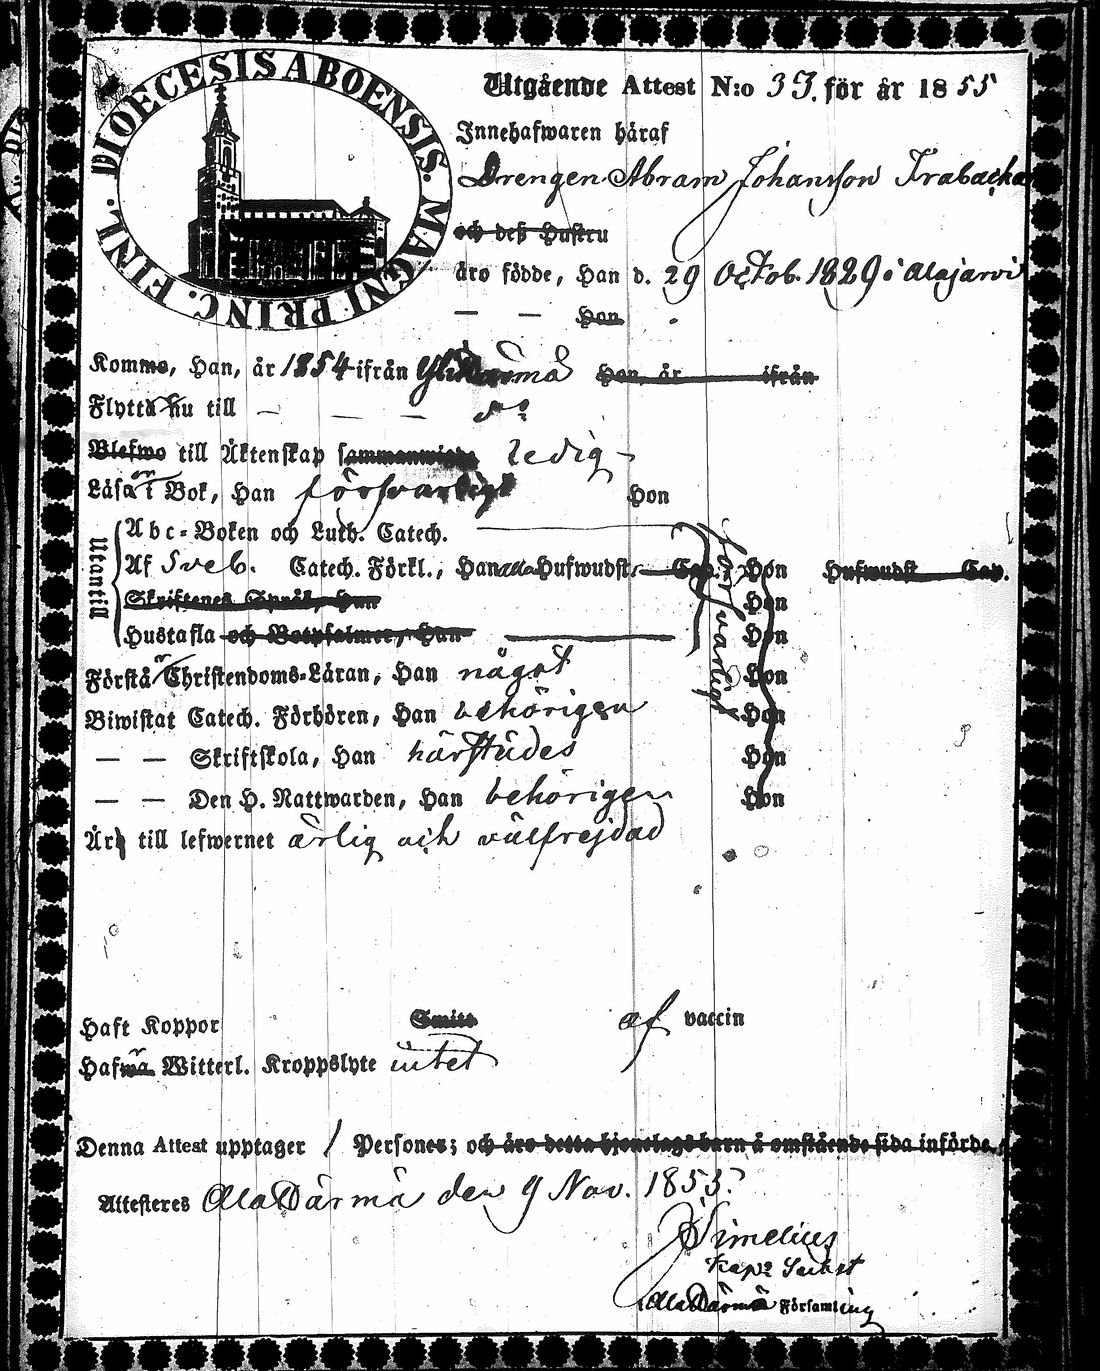 DIOECESIS ABOENSIS. MAGNI PRINC. FINL.
Utgående Attest N:o 33. för år 1855
Innehafwaren häraf
Drengen Abram Johansson Trabacka
och deß Hustru
äro födde, Han d. 29 Octob. 1829 i Alajärvi
— — Hon
Komme, Han, år 1854 ifrån Ylidärmä Hon, år ifrån
Flytta nu till — — — do
Blefwo till Äktenskap sammanwigde ledig -
Läsa i Bok, Han försvarligt Hon
Utantill
Abc-Boken och Luth. Catech.
Af Sveb. Catech. Förkl., Han alla Hufwudst. Cap. Hon Hufwudst Cap.
Skriftenes Språk, Han Hon
Hustafla och Botpsalmer, Han Hon
försvarligt
Förstår Christendoms-Läran, Han något Hon
Biwistat Catech. Förhören, Han behörigen Hon
— — Skriftskola, Han härstädes Hon
— — Den H. Nattwarden, Han behörigen Hon
Är till lefwernet ärlig och välfrejdad
Haft Koppor Smitt af vaccin
Hafwa Witterl. Kroppslyte intet
Denna Attest upptager 1 Persones; och äro detta hjonelags barn å omstående sida införde.
Attesteres AlaDärmä den 9 Nov. 1855.
Simelius
Kap:
AlaDärmä Församling